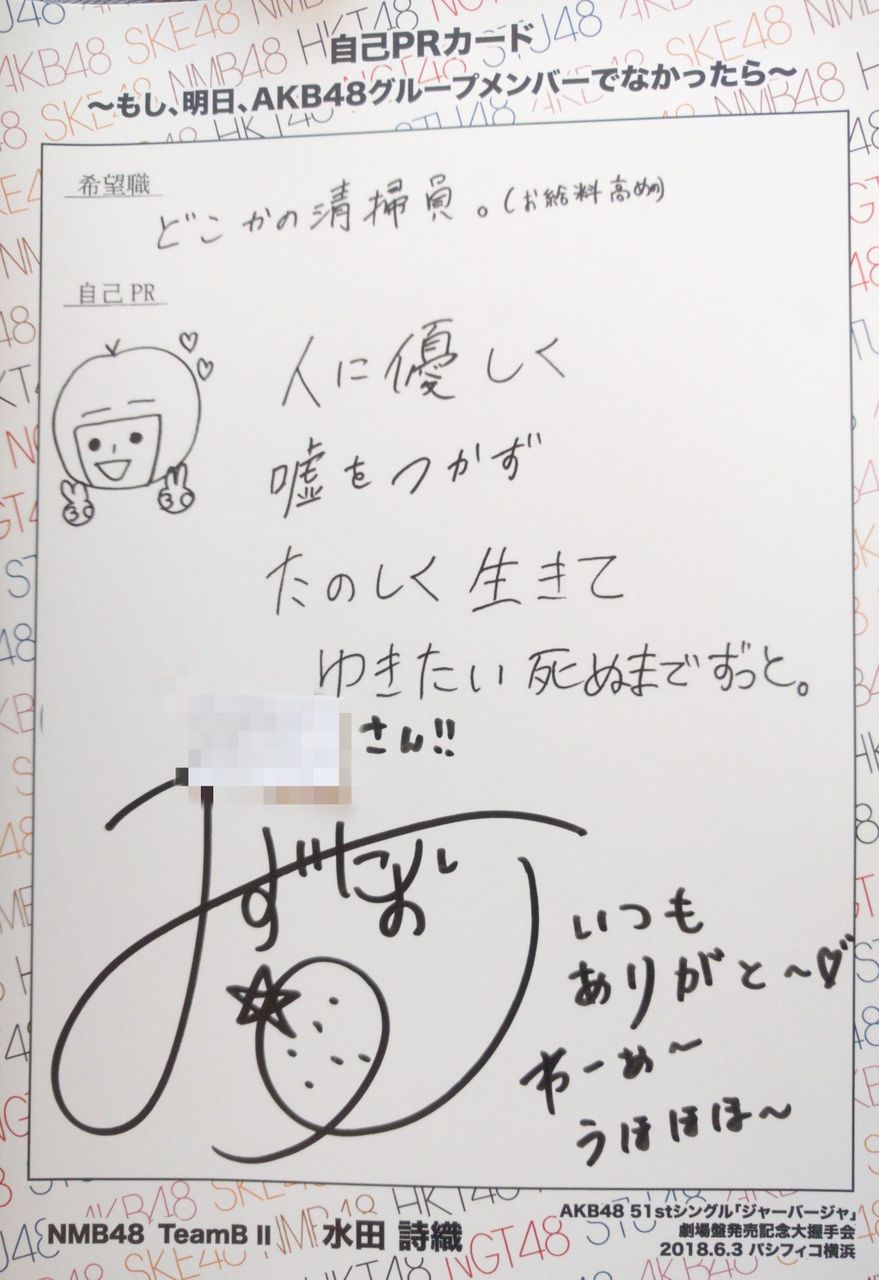 自己PRカード
～もし、明日、AKB48グループメンバーでなかったら～
希望職
どこかの清掃員。(お給料高め)
自己 PR
人に優しく
嘘をつかず
たのしく生きて
ゆきたい死ぬまでずっと。
さん!!
いつも
ありがと～♡
わーぁ～
うほほほ～
NMB48 TeamB II 水田 詩織
AKB48 51stシングル「ジャーバージャ」
劇場盤発売記念大握手会
2018.6.3 パシフィコ横浜